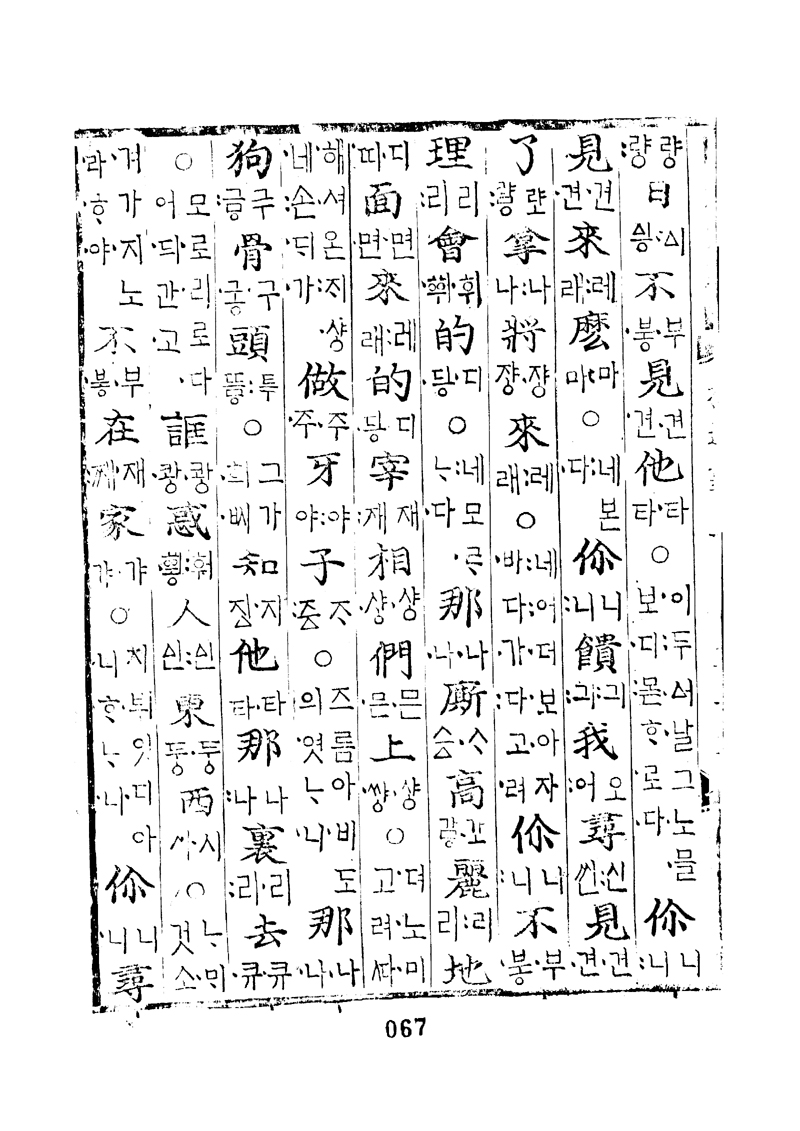 량:량日ᅀᅵ不부·붕見견·견他타타○이:두서날그노·믈보·디:몯·ᄒᆞ로·다你니:니
見견·견來레래麽마마○:네본다你니:니饋我오:어尋신씬見견·견
了拿나나將쟝쟝來레래○:네어더보아자·바다가:다고·려你니:니不부·붕
理리:리會휘的디·딍○:네모ᄅᆞᄂᆞ·다那나·나厮高麗리:리地
디·띠面면·면來레래的디·딍宰재:재相샹·샹們믄·믄上샹·썅○뎌노·미고려ᄯᅡ
해셔온:지샹·네:손·ᄃᆡ·가做주·주牙야:야子ᄌᆞ○즈름아비도의·엿ᄂᆞ·니那나·나
狗구:굼骨구·궁頭○그가희·ᄲᅧ知지·징他타타那나:나裏리:리去큐·큐
○모로리로다어·듸간·고誑광·광惑人ᅀᅵᆫ:ᅀᅵᆫ東둥·둥西시○ᄂᆞ·ᄆᆡ것소
겨가지노라·ᄒᆞ·야不부·붕在재家갸·갸○지·븨잇디아·니·ᄒᆞᄂᆞ·니你니:니尋
067